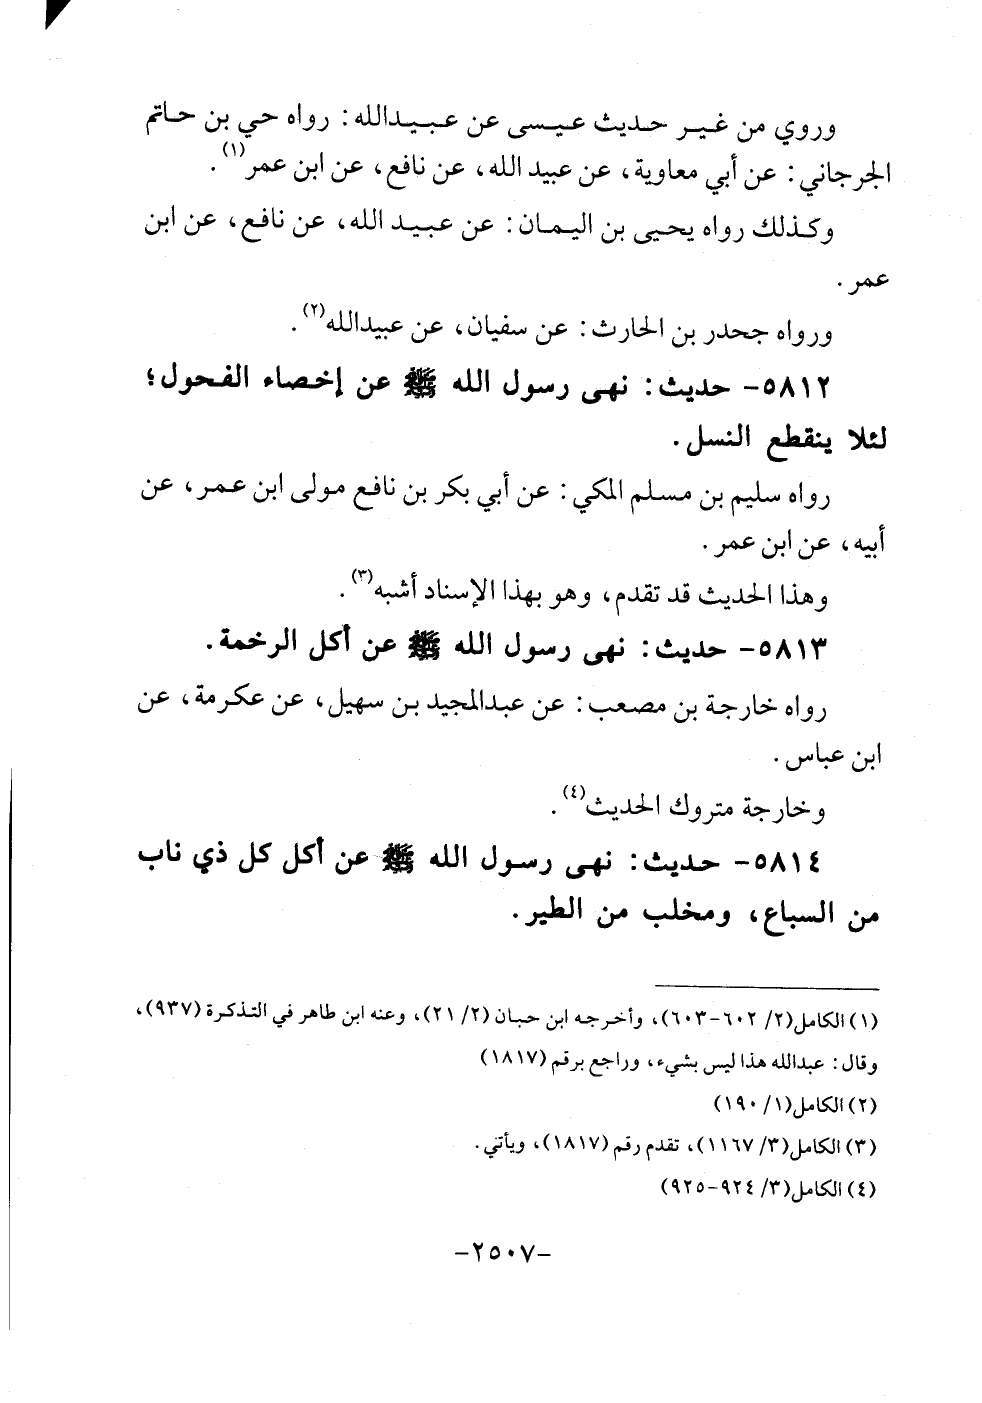 وروي من غير حديث عيسى عن عبيدالله: رواه حي بن حاتم
الجرجاني: عن أبي معاوية، عن عبيد الله، عن نافع، عن ابن عمر(١).
وكذلك رواه يحيى بن اليمان: عن عبيد الله، عن نافع، عن ابن
عمر.
ورواه جحدر بن الحارث: عن سفيان، عن عبيدالله(٢).
٥٨١٢- حديث: نهى رسول الله ﷺ عن إخصاء الفحول؛
لئلا ينقطع النسل.
رواه سليم بن مسلم المكي: عن أبي بكر بن نافع مولى ابن عمر، عن
أبيه، عن ابن عمر.
وهذا الحديث قد تقدم، وهو بهذا الإسناد أشبه(٣).
٥٨١٣- حديث: نهى رسول الله ﷺ عن أكل الرخمة.
رواه خارجة بن مصعب: عن عبدالمجيد بن سهيل، عن عكرمة، عن
ابن عباس.
وخارجة متروك الحديث(٤).
٥٨١٤- حديث: نهى رسول الله ﷺ عن أكل كل ذي ناب
من السباع، ومخلب من الطير.
(١) الكامل(٢/ ٦٠٢-٦٠٣)، وأخرجه ابن حبان (٢/ ٢١)، وعنه ابن طاهر في التذكرة (٩٣٧)،
وقال: عبدالله هذا ليس بشيء، وراجع برقم (١٨١٧)
(٢) الكامل(١/ ١٩٠)
(٣) الكامل(٣/ ١١٦٧)، تقدم رقم (١٨١٧)، ويأتي.
(٤) الكامل(٣/ ٩٢٤-٩٢٥)
-٢٥٠٧-